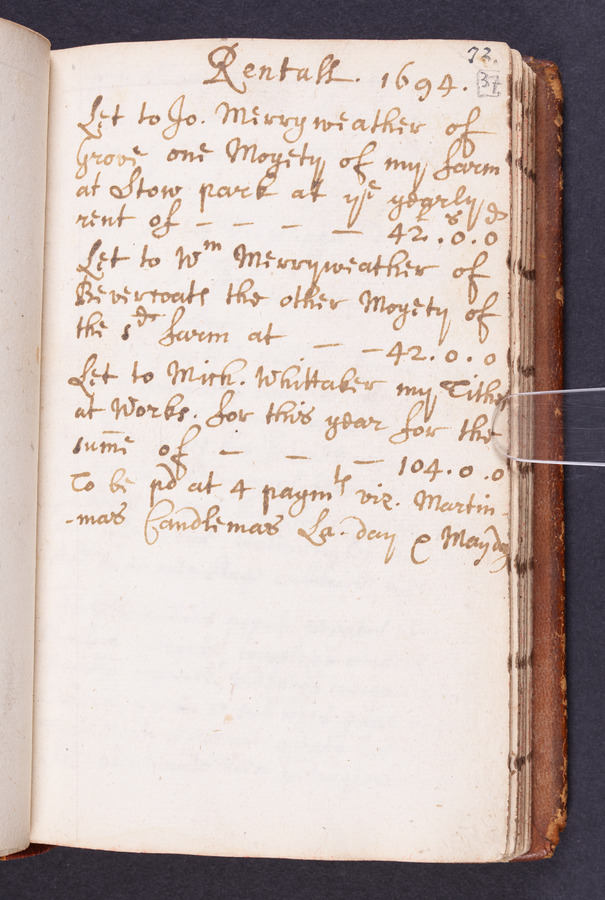 73.
37
Rentall. 1694.
Let to Jo. Merryweather of
Grove one Moyety of my farm
at Stow park at ye yearly
rent of — — — — 42 . 0 . 0
Let to Wm Merryweather of
Bevercoats the other Moyety of
the sd farm at — — 42 . 0 . 0
Let to Mich. Whittaker my Tithe
at Works. for this year for the
sume of — — — 104 . 0 . 0
To be pd at 4 paymts viz. Martin-
-mas Candlemas La-day & Mayday